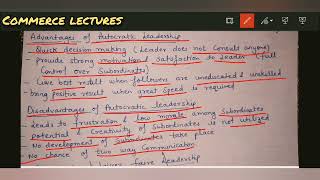 COMMERCE LECTURES
Advantages of Autocratic Leadership
- Quick decision making (Leader does not Consult anyone)
- provide strong motivation & Satisfaction to Leader (full
Control over Subordinates)
- Give best result when followers are uneducated & unskilled
- bring positive result when great Speed is required
Disadvantages of Autocratic leadership
- Leads to frustration & low morale among Subordinates
- potential & Creativity of Subordinates is not utilized
- No development of Subordinates take place
- No chance of two way Communication
faire Leadership